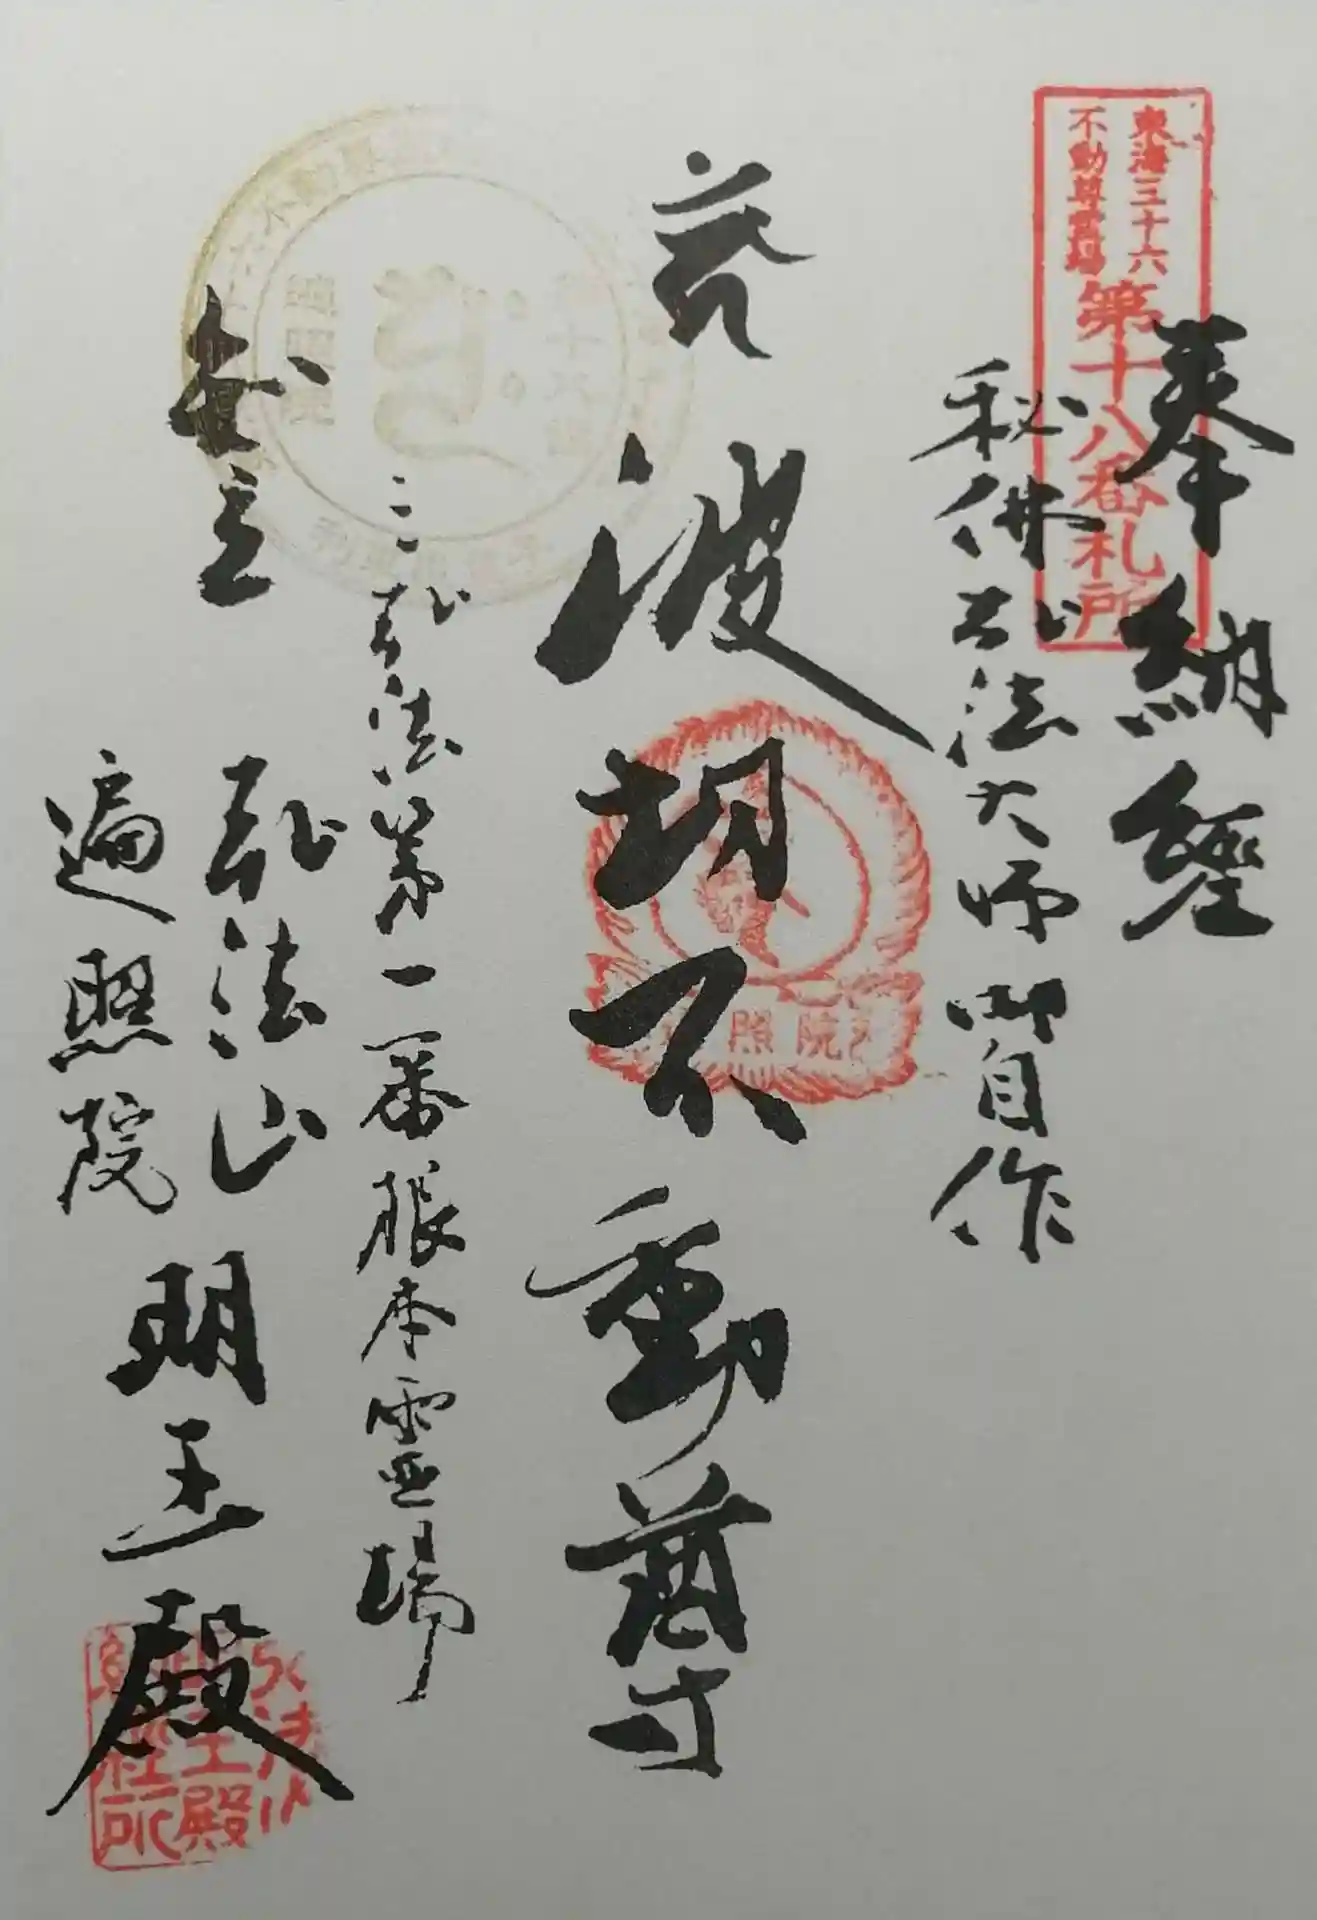 東海三十六
不動尊霊場
第十八番札所
奉納經
秘佛弘法大師御自作
波切不動尊
照院
第十八番
遍照院
三弘法第一番根本霊場
知立
弘法山
遍照院
明王殿
弘法山
明王殿
納経所